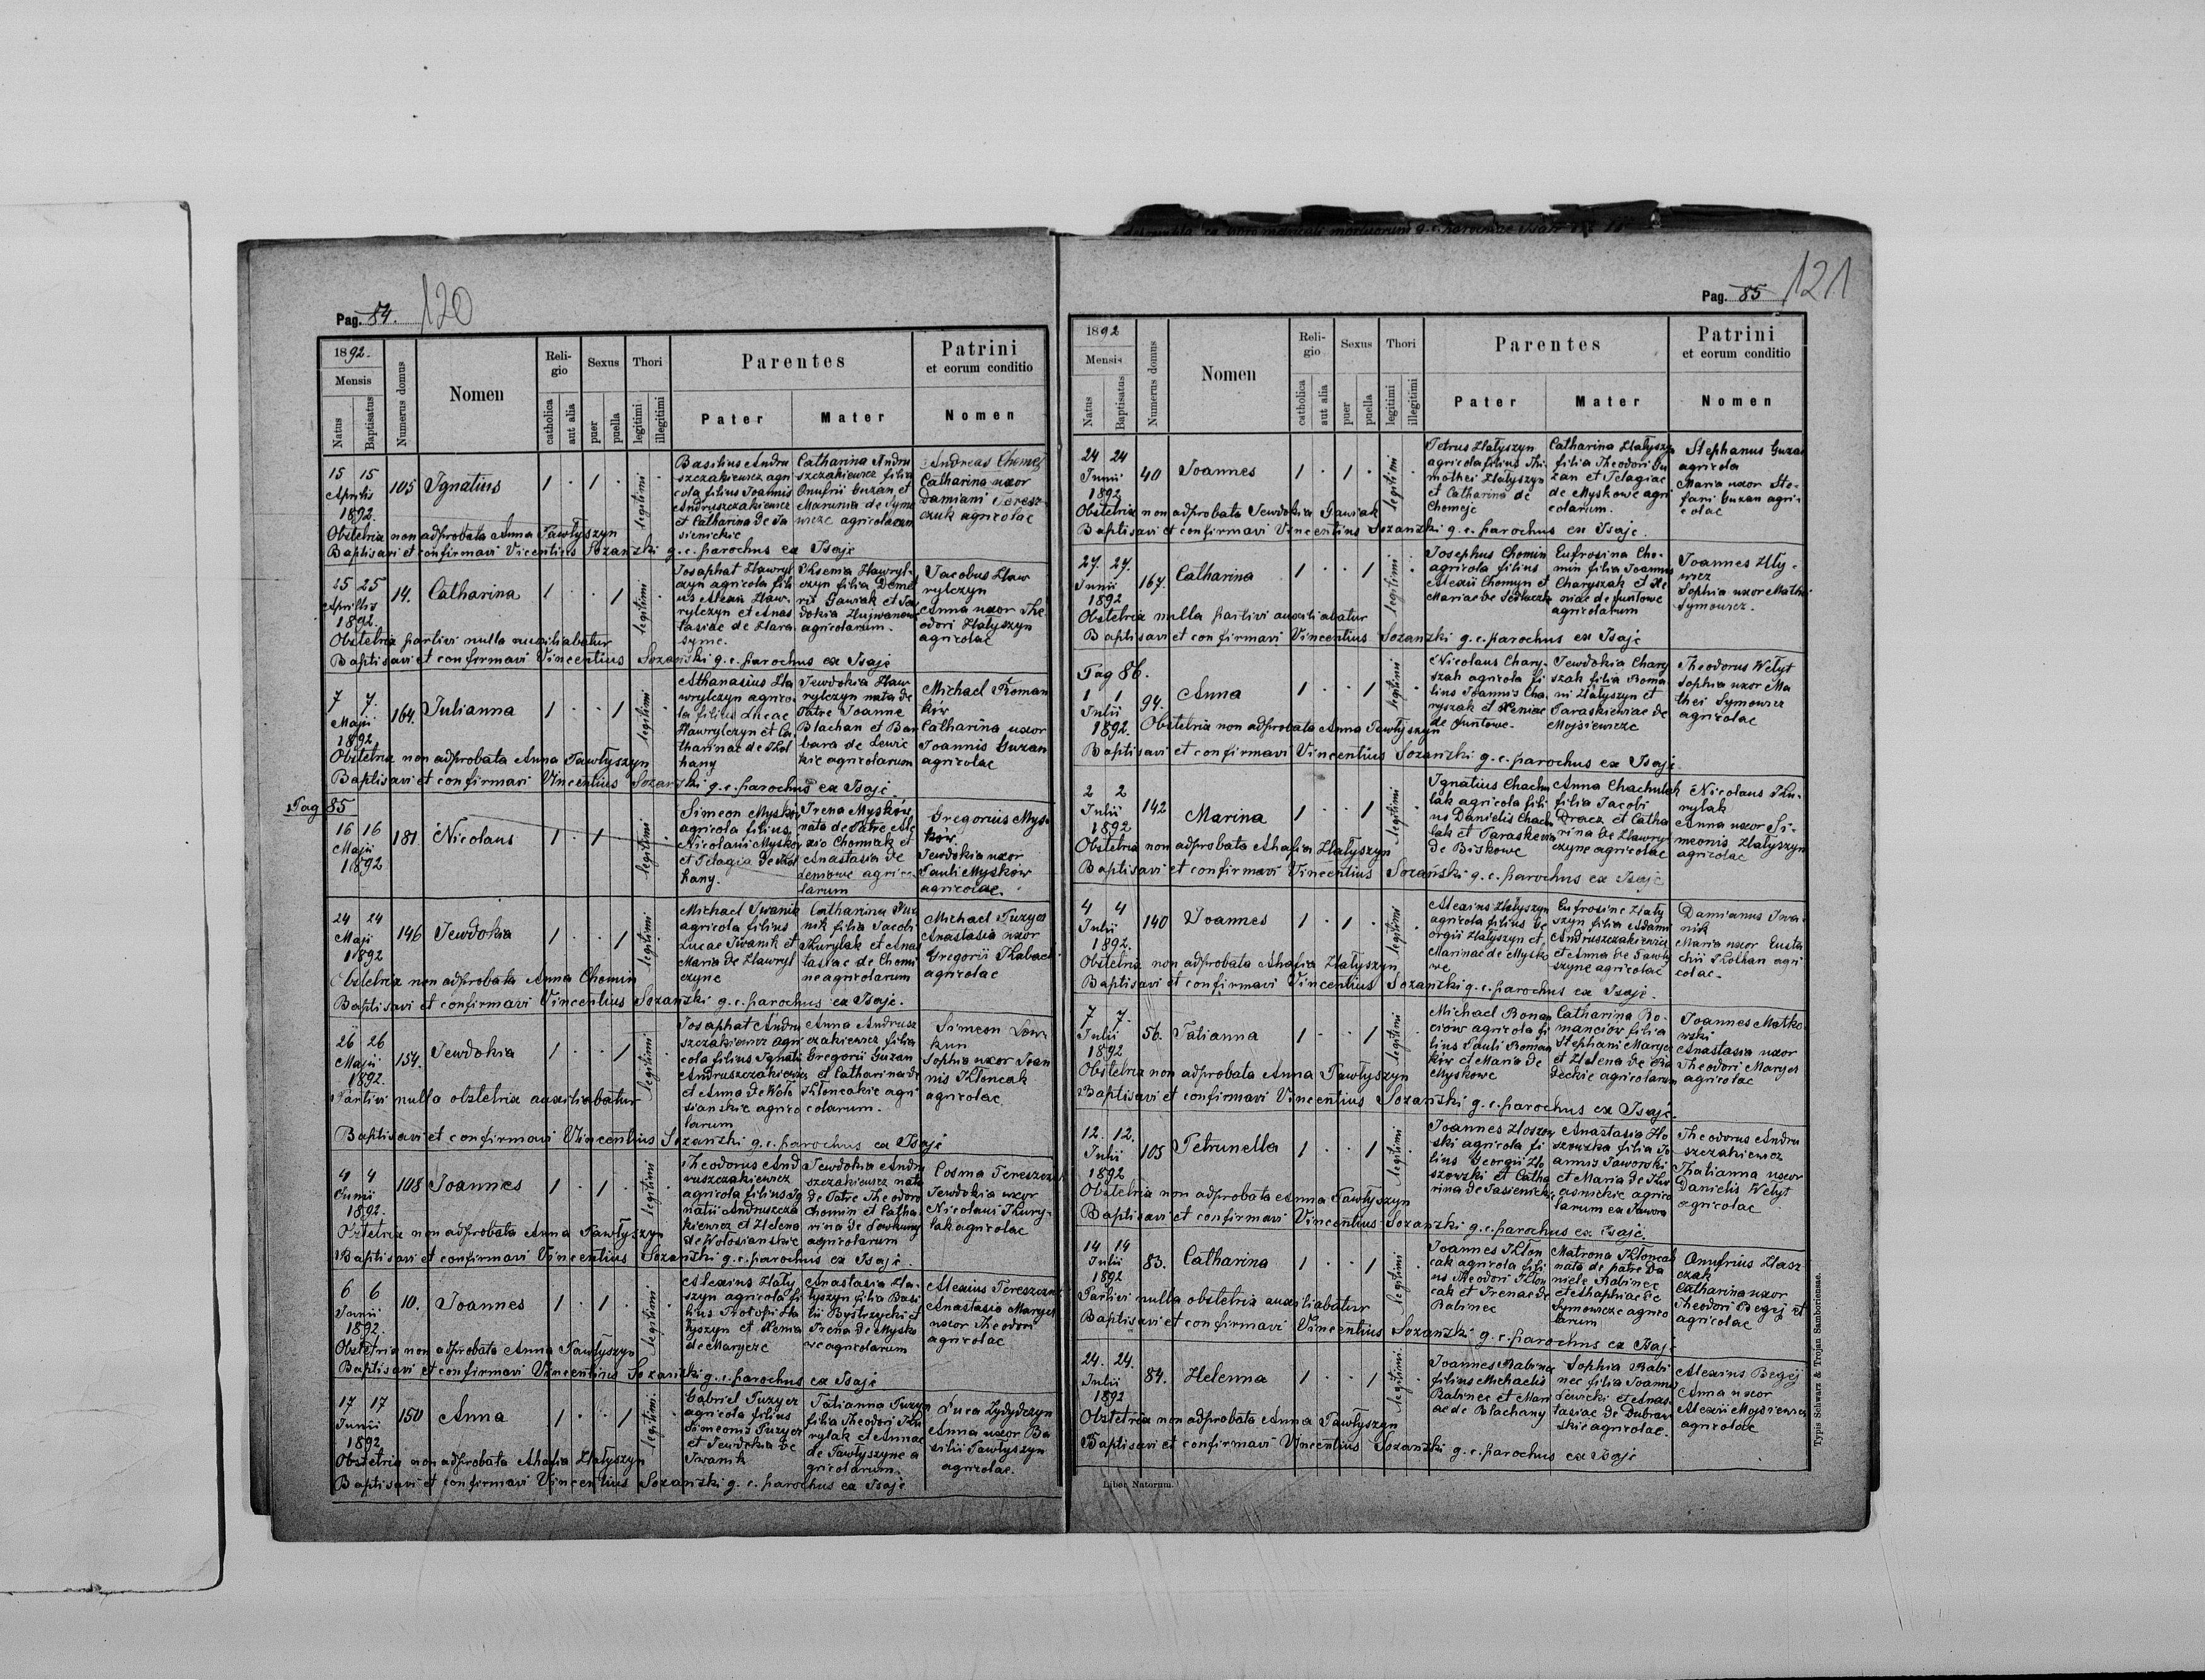 Pag. 84. 120
1892.
Mensis
Natus
Baptisatus
Numerus domus
Nomen
Reli-
gio
catholica
aut alia
Sexus
puer
puella
Thori
legitimi
illegitimi
Parentes
Pater
Mater
Patrini
et eorum conditio
Nomen
15 15
Aprilis
1892.
105
Ignatius
1 . 1 .
legitimi
Basilius Andru
szczakiewicz agri
cola filius Joannis
Andruszczakiewicz
et Catharina de Ja
sienickie
Catharina Andru
szczakiewicz filia
Onufrii Guzan et
Marunia de Symo
wicze agricolarum
Andreas Chomej
Catharina uxor
Damiani Teresz
czuk agricolae
Obstetrix non adprobata Anna Pawłyszyn
Baptisavi et confirmavi Vicentius Sozański g. c. parochus ex Isaje
25 25
Aprilis
1892.
14.
Catharina
1 . . 1
legitimi
Josaphat Hawryl
czyn agricola fili
us Alexii Haw-
rylczyn et Anas
tasiae de Hara
syme.
Ksenia Hawryl-
czyn filia Demet
rii Gawiak et Jew
dokia Hujwanow
agricolarum.
Jacobus Haw
rylczyn
Anna uxor The
odori Hałyszyn
agricolae
Obstetrix partivi nulla auxiliabatur
Baptisavi et confirmavi Vincentius Sozański g. c. parochus ex Isaje
7 7.
Maji
1892.
164.
Julianna
1 . . 1
legitimi
Athanasius Ha
wrylczyn agrico-
la filius Lucae
Hawrylczyn et Ca
tharinae de Koł
hany
Jewdokia Haw
rylczyn nata de
Patre Joanne
Blachan et Bar
bara de Lewic
kie agricolarum
Michael Roman
ków
Catharina uxor
Joannis Guzan
agricolae
Obstetrix non adprobata Anna Pawłyszyn
Baptisavi et confirmavi Vincentius Sozański g. c. parochus ex Isaje.
Pag 85
16 16
Maji
1892
181.
Nicolaus
1 . 1
legitimi
Simeon Mysków
agricola filius
Nicolaii Mysków
et Pelagia de Koł
hany.
Irena Mysków
nata de Patre Ale
xio Chomiak et
Anastasia de
agrico
larum
Gregorius Mys
ków
Jewdokia uxor
Pauli Mysków
agricolae.
24 24
Maji
1892
146
Jewdokia
1 . . 1
legitimi
Michael Iwanik
agricola filius
Lucae Iwanik et
Maria de Hawryl
czyne
Catharina Iwa
nik filia Jacobi
Kurylak et Anas
tasiae de Chomi
ne agricolarum
Michael Puzycz
Anastasia uxor
Gregorii Kabacij
agricolae
Obstetrix non adprobata Anna Chomin
Baptisavi et confirmavi Vincentius Sozański g. c. parochus ex Isaje.
26 26
Maji
1892.
154.
Jewdokia
1 . . 1
legitimi
Josaphat Andru
szczakiewicz agri
cola filius Ignatii
Andruszczakiewicz
et Anna de Woło
siańskie agrico
larum
Anna Andrusz
czakiewicz filia
Gregorii Guzan
et Catharina de
Kłoncakie agri
colarum.
Simeon Lew-
kun
Sophia uxor Joan
nis Kłoncak
agricolae
Partivi nulla obstetrix auxiliabatur
Baptisavi et confirmavi Vincentius Sozański g. c. parochus ex Isaje
4 4
Junii
1892.
108
Joannes
1 . 1 .
legitimi
Theodorus And
ruszczakiewicz
agricola filius Ig
natii Andruszcza
kiewicz et Helena
de Wołosiańskie
Jewdokia Andru
szczakiewicz nata
de Patre Theodoro
Chomin et Catha
rina de Lewkuny
agricolarum
Cosma Tereszczuk
Jewdokia uxor
Nicolaui Kury-
lak agricolae
Obstetrix non adprobata Anna Pawłyszyn
Baptisavi et confirmavi Vincentius Sozański g. c. parochus ex Isaje.
6 6
Junii
1892.
10.
Joannes
1 . 1 .
legitimi
Alexius Hały
szyn agricola fi
lius Prokopi Ha
łyszyn et Xenia
de Marycze
Anastasia Ha-
łyszyn filia Basi
lii Bystrzycki et
Irena de Mysko
we agricolarum
Alexius Tereszczuk
Anastasia Marycz
uxor Theodori
agricolae
Obstetrix non adprobata Anna Pawłyszyn
Baptisavi et confirmavi Vincentius Sozański g. c. parochus ex Isaje
17 17
Junii
1892
150
Anna
1 . . 1
legitimi
Gabriel Puzycz
agricola filius
Simeonis Puzycz
et Jewdokia de
Iwanik
Tatianna Puzycz
filia Theodori Ku
rylak et Annae
de Pawłyszyne a
gricolarum
Luca Dydyczyn
Anna uxor Ba
silii Pawłyszyn
agricolae.
Obstetrix non adprobata Ahafia Hałyszyn
Baptisavi et confirmavi Vincentius Sozański g. c. parochus ex Isaje
Pag. 85 121
1892
Mensis
Natus
Baptisatus
Numerus domus
Nomen
Reli-
gio
catholica
aut alia
Sexus
puer
puella
Thori
legitimi
illegitimi
Parentes
Pater
Mater
Patrini
et eorum conditio
Nomen
24 24
Junii
1892
40
Joannes
1 . 1 .
legitimi
Petrus Hałyszyn
agricola filius Thi-
mothei Hałyszyn
et Catharina de
Chomeje
Catharina Hałyszyn
filia Theodori Gu
zan et Pelagiae
de Myskowe agri
colarum.
Stephanus Guzan
agricola
Maria uxor Ste-
fani Guzan agri-
colae
Obstetrix non adprobata Jewdokia Gawiak
Baptisavi et confirmavi Vincentius Sozański g. c. parochus ex Isaje.
27. 27.
Junii
1892
167.
Catharina
1 . . 1
legitimi
Josephus Chomin
agricola filius
Alexii Chomyn et
Mariae de Sedłaczek
Eufrosina Cho-
min filia Joannis
Charyszak et Xe
niae de Juntowe
agricolarum
Joannes Hły-
wicz
Sophia uxor Mathei
Symowicz.
Obstetrix nulla partivi auxiliabatur
Baptisavi et confirmavi Vincentius Sozański g. c. parochus ex Isaje
Pag 86.
1 1
Julii
1892.
94.
Anna
1 . . 1
legitimi
Nicolaus Chary-
szak agricola fi
lius Joannis Cha
ryszak et Xeniae
de Juntowe.
Jewdokia Chary
szak filia Roma
ni Hałyszyn et
Paraskiewiae de
Mojsiewicze
Theodorus Wełyt
Sophia uxor Ma
thei Symowicz
agricolae
Obstetrix non adprobata Anna Pawłyszyn
Baptisavi et confirmavi Vincentius Sozański g. c. parochus ex Isaje
2 2
Julii
1892
142
Marina
1 . . 1
legitimi
Ignatius Chachu
lak agricola fili
us Danielis Chachu
lak et Paraskewia
de Biskowe
Anna Chachulak
filia Jacobi
Dracz et Catha
rina de Hawryl
czyne agricolae
Nicolaus Ku-
rylak
Anna uxor Si-
meonis Hałyszyn
agricolae
Obstetrix non adprobata Ahafia Hałyszyn
Baptisavi et confirmavi Vincentius Sozański g. c. parochus ex Isaje
4 4
Julii
1892.
140
Joannes
1 . 1 .
legitimi
Alexius Hałyszyn
agricola filius Ge
orgii Hałyszyn et
Marinae de Mysko
we
Eufrosine Hały
szyn filia Adami
Andruszczakiewicz
et Anna de Pawły
szyne agricolae
Damianus Iwa-
nik
Maria uxor Eusta
chii Kolhan agri
colae.
Obstetrix non adprobata Ahafia Hałyszyn
Baptisavi et confirmavi Vincentius Sozański g. c. parochus ex Isaje.
7 7.
Julii
1892
56.
Tatianna
1 . . 1
legitimi
Michael Roman
ciow agricola fi
lius Pauli Roman
kiw et Maria de
Myskowe
Catharina Ro-
manciow filia
Stephani Marycz
et Helena de Bia
deckie agricolarum
Joannes Matko
wski
Anastasia uxor
Theodori Marycz
agricolae
Obstetrix non adprobata Anna Pawłyszyn
Baptisavi et confirmavi Vincentius Sozański g. c. parochus ex Isaje.
12. 12.
Julii
1892
105
Petrunella
1 . . 1
legitimi
Joannes Hoszow
ski agricola fi
lius Georgii Ho
szowski et Catha
rina de Jasienickie
Anastasia Ho
szowska filia Jo
annis Jaworski
et Maria de Kur
asnickie agrico
larum ex Jawora
Theodorus Andru
szczakiewicz
Thatianna uxor
Danielis Wełyt
agricolae
Obstetrix non adprobata Anna Pawłyszyn
Baptisavi et confirmavi Vincentius Sozański g. c. parochus ex Isaje.
14 14
Julii
1892
83.
Catharina
1 . . 1
legitimi
Joannes Kłon
cak agricola fili
us Theodori Kłon
cak et Irenae de
Babinec
Matrona Kłoncak
nata de patre Da
niele Babinec
et Ahaphiae de
Symowicze agrico
larum
Onufrius Hasz
czak
Catharina uxor
Theodori Begej et
agricolae
Partivi nulla obstetrix auxiliabatur
Baptisavi et confirmavi Vincentius Sozański g. c. parochus ex Isaje
24. 24.
Julii
1892
84.
Helenna
1 . . 1
legitimi
Joannes Babinec
filius Michaelis
Babinec et Mari
ae de Blachany
Sophia Babi
nec filia Joannis
Lewicki et Anas-
tasiae de Dubraw
skie agricolae.
Alexius Begej
Anna uxor
Alexii Mojsiewicz
agricolae
Obstetrix non adprobata Anna Pawłyszyn
Baptisavi et confirmavi Vincentius Sozański g. c. parochus ex Isaje
Liber Natorum.
Typis Schwarz & Trojan Samboriensae.